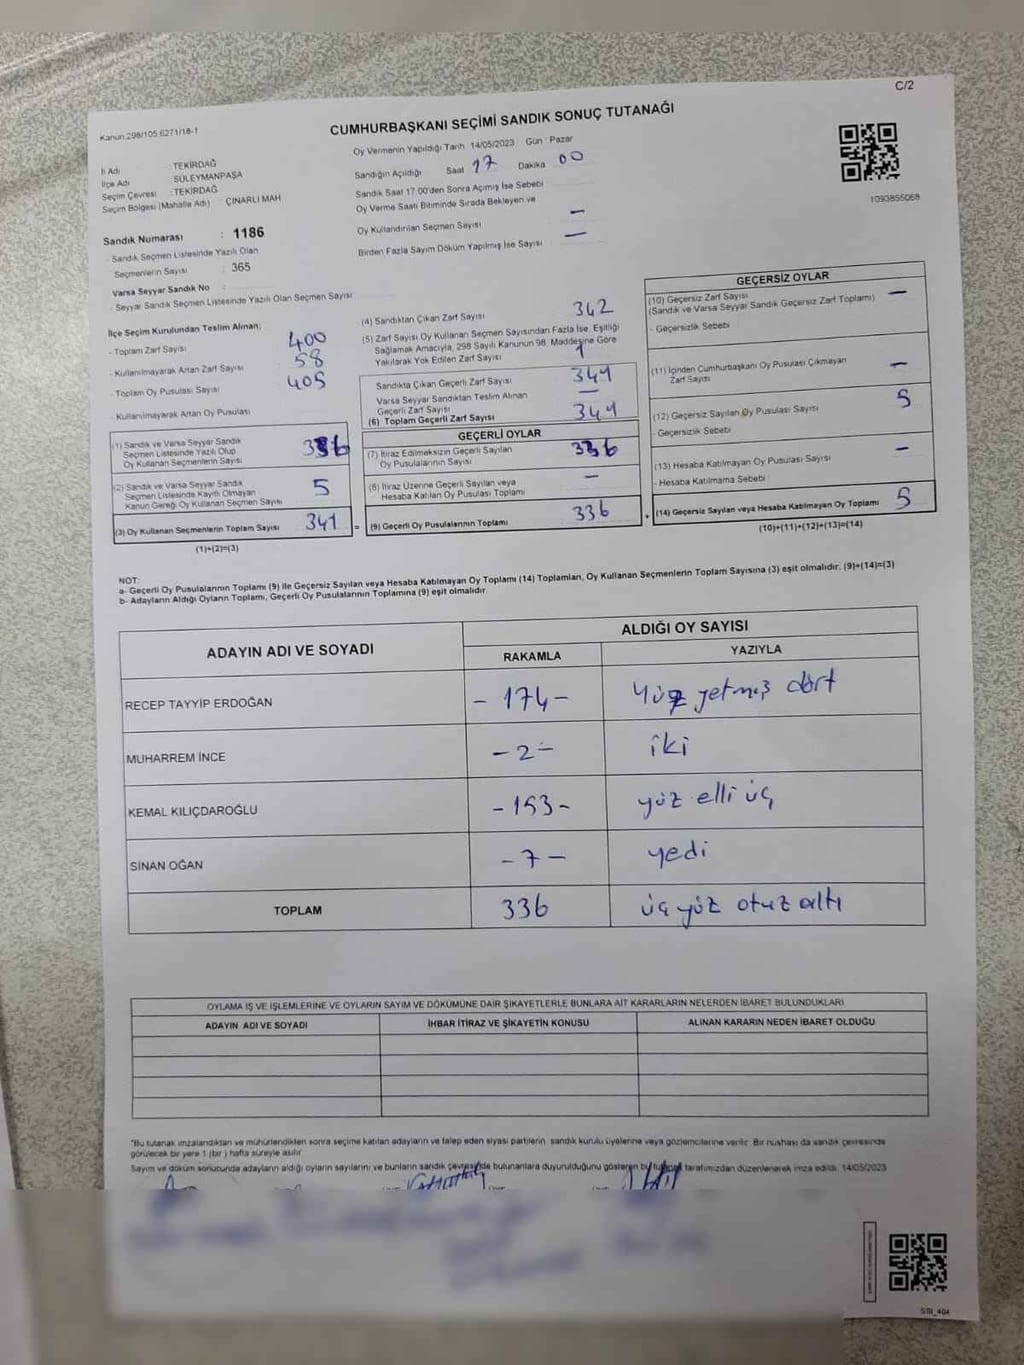 C/2
Kanun:298/105.6271/18-1
CUMHURBAŞKANI SEÇİMİ SANDIK SONUÇ TUTANAĞI
İl Adı : TEKİRDAĞ
İlçe Adı SÜLEYMANPAŞA
Seçim Çevresi : TEKİRDAĞ
Seçim Bölgesi (Mahalle Adı) ÇINARLI MAH
Sandık Numarası : 1186
- Sandık Seçmen Listesinde Yazılı Olan
Seçmenlerin Sayısı : 365
Varsa Seyyar Sandık No :
- Seyyar Sandık Seçmen Listesinde Yazılı Olan Seçmen Sayısı
Oy Vermenin Yapıldığı Tarih 14/05/2023 Gün : Pazar
Sandığın Açıldığı Saat 17 Dakika 00
Sandık Saat 17.00'den Sonra Açımış İse Sebebi
Oy Verme Saati Bitiminde Sırada Bekleyen ve
Oy Kullandırılan Seçmen Sayısı —
Birden Fazla Sayım Döküm Yapılmış İse Sayısı —
1093855068
İlçe Seçim Kurulundan Teslim Alınan;
- Toplam Zarf Sayısı 400
- Kullanılmayarak Artan Zarf Sayısı 58
- Toplam Oy Pusulası Sayısı 405
- Kullanılmayarak Artan Oy Pusulası
(1) Sandık ve Varsa Seyyar Sandık
Seçmen Listesinde Yazılı Olup
Oy Kullanan Seçmenlerin Sayısı 336
(2) Sandık ve Varsa Seyyar Sandık
Seçmen Listesinde Kayıtlı Olmayan
Kanun Gereği Oy Kullanan Seçmen Sayısı 5
(3) Oy Kullanan Seçmenlerin Toplam Sayısı 341 =
(1)+(2)=(3)
(4) Sandıktan Çıkan Zarf Sayısı 342
(5) Zarf Sayısı Oy Kullanan Seçmen Sayısından Fazla İse, Eşitliği
Sağlamak Amacıyla, 298 Sayılı Kanunun 98. Maddesine Göre
Yakılarak Yok Edilen Zarf Sayısı 1
Sandıkta Çıkan Geçerli Zarf Sayısı 341
Varsa Seyyar Sandıktan Teslim Alınan
Geçerli Zarf Sayısı —
(6) Toplam Geçerli Zarf Sayısı 341
GEÇERLİ OYLAR
(7) İtiraz Edilmeksizin Geçerli Sayılan
Oy Pusulalarının Sayısı 336
(8) İtiraz Üzerine Geçerli Sayılan veya
Hesaba Katılan Oy Pusulası Toplamı —
(9) Geçerli Oy Pusulalarının Toplamı 336 +
GEÇERSİZ OYLAR
(10) Geçersiz Zarf Sayısı —
(Sandık ve Varsa Seyyar Sandık Geçersiz Zarf Toplamı)
- Geçersizlik Sebebi
(11) İçinden Cumhurbaşkanı Oy Pusulası Çıkmayan
Zarf Sayısı —
(12) Geçersiz Sayılan Oy Pusulası Sayısı 5
- Geçersizlik Sebebi
(13) Hesaba Katılmayan Oy Pusulası Sayısı —
- Hesaba Katılmama Sebebi
(14) Geçersiz Sayılan veya Hesaba Katılmayan Oy Toplamı 5
(10)+(11)+(12)+(13)=(14)
NOT:
a- Geçerli Oy Pusulalarının Toplamı (9) ile Geçersiz Sayılan veya Hesaba Katılmayan Oy Toplamı (14) Toplamları, Oy Kullanan Seçmenlerin Toplam Sayısına (3) eşit olmalıdır. (9)+(14)=(3)
b- Adayların Aldığı Oyların Toplamı, Geçerli Oy Pusulalarının Toplamına (9) eşit olmalıdır.
ADAYIN ADI VE SOYADI ALDIĞI OY SAYISI
RAKAMLA YAZIYLA
RECEP TAYYİP ERDOĞAN - 174 - Yüz yetmiş dört
MUHARREM İNCE - 2 - iki
KEMAL KILIÇDAROĞLU - 153 - yüz elli üç
SİNAN OĞAN - 7 - yedi
TOPLAM 336 üç yüz otuz altı
OYLAMA İŞ VE İŞLEMLERİNE VE OYLARIN SAYIM VE DÖKÜMÜNE DAİR ŞİKAYETLERLE BUNLARA AİT KARARLARIN NELERDEN İBARET BULUNDUKLARI
ADAYIN ADI VE SOYADI İHBAR İTİRAZ VE ŞİKAYETİN KONUSU ALINAN KARARIN NEDEN İBARET OLDUĞU
"Bu tutanak imzalandıktan ve mühürlendikten sonra seçime katılan adayların ve talep eden siyasi partilerin sandık kurulu üyelerine veya gözlemcilerine verilir. Bir nüshası da sandık çevresinde
görülecek bir yere 1 (bir) hafta süreyle asılır
Sayım ve döküm sonucunda adayların aldığı oyların sayılarını ve bunların sandık çevresinde bulunanlara duyurulduğunu gösteren bu tutanak tarafımızdan düzenlenerek imza edildi. 14/05/2023
SSI_404